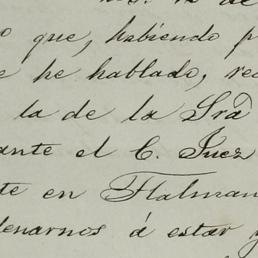 o que, habiendo p
e he hablado, re
la de la Sra
ante el C. Juez
te en Tlalman
denarnos á estar y